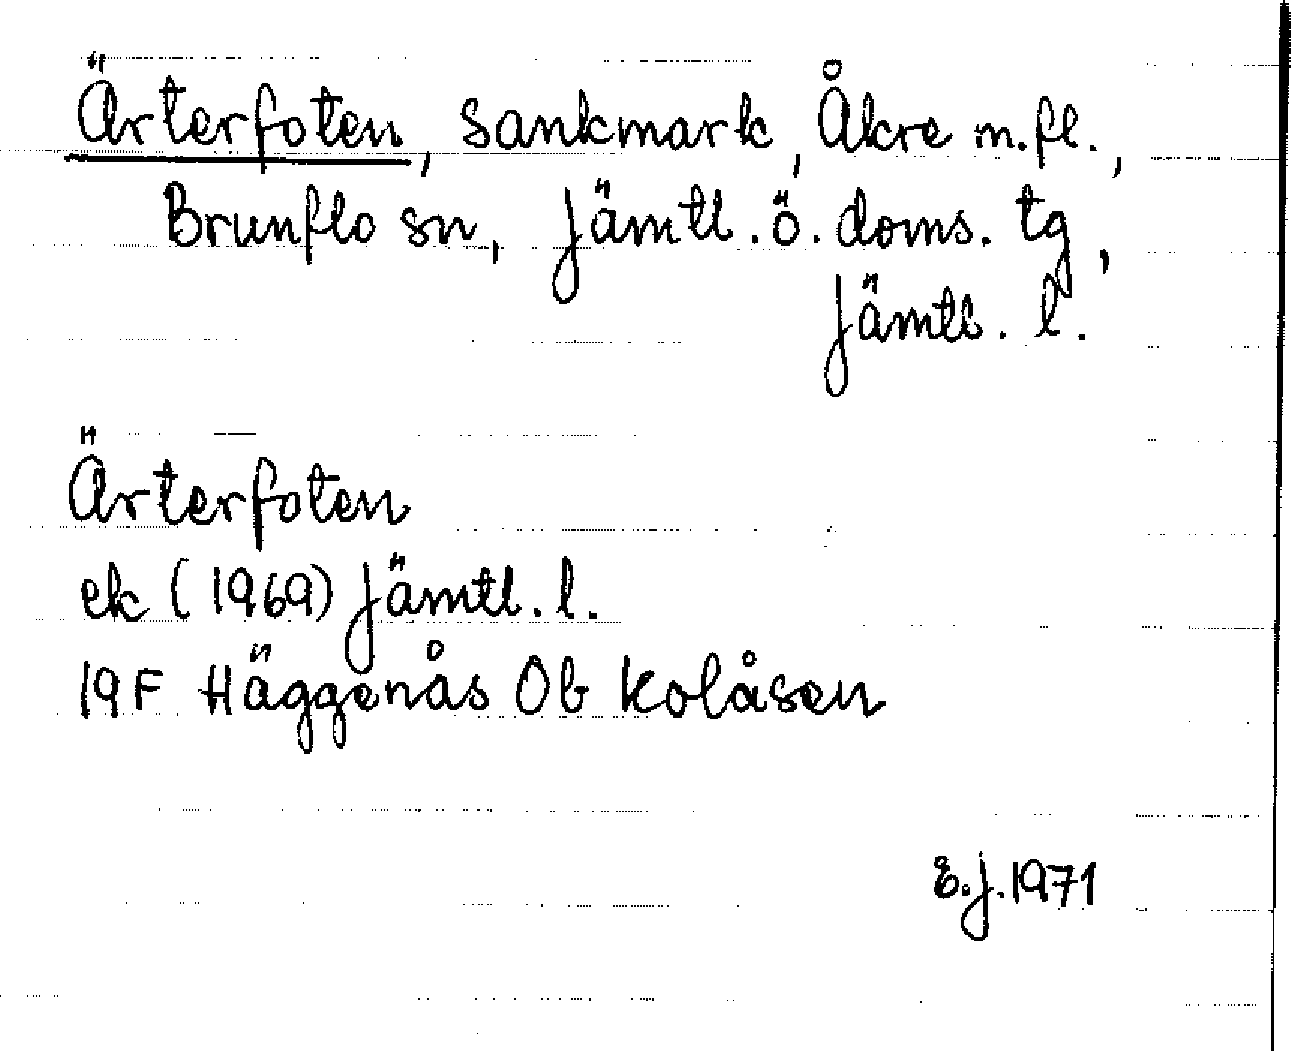 Ärterfoten, sankmark, Åkre m.fl.,
Brunflo sn, Jämtl.ö.doms. tg,
Jämtl. l.
Ärterfoten
ek (1969) Jämtl. l.
19F Häggenås Ob Kolåsen
E.J. 1971